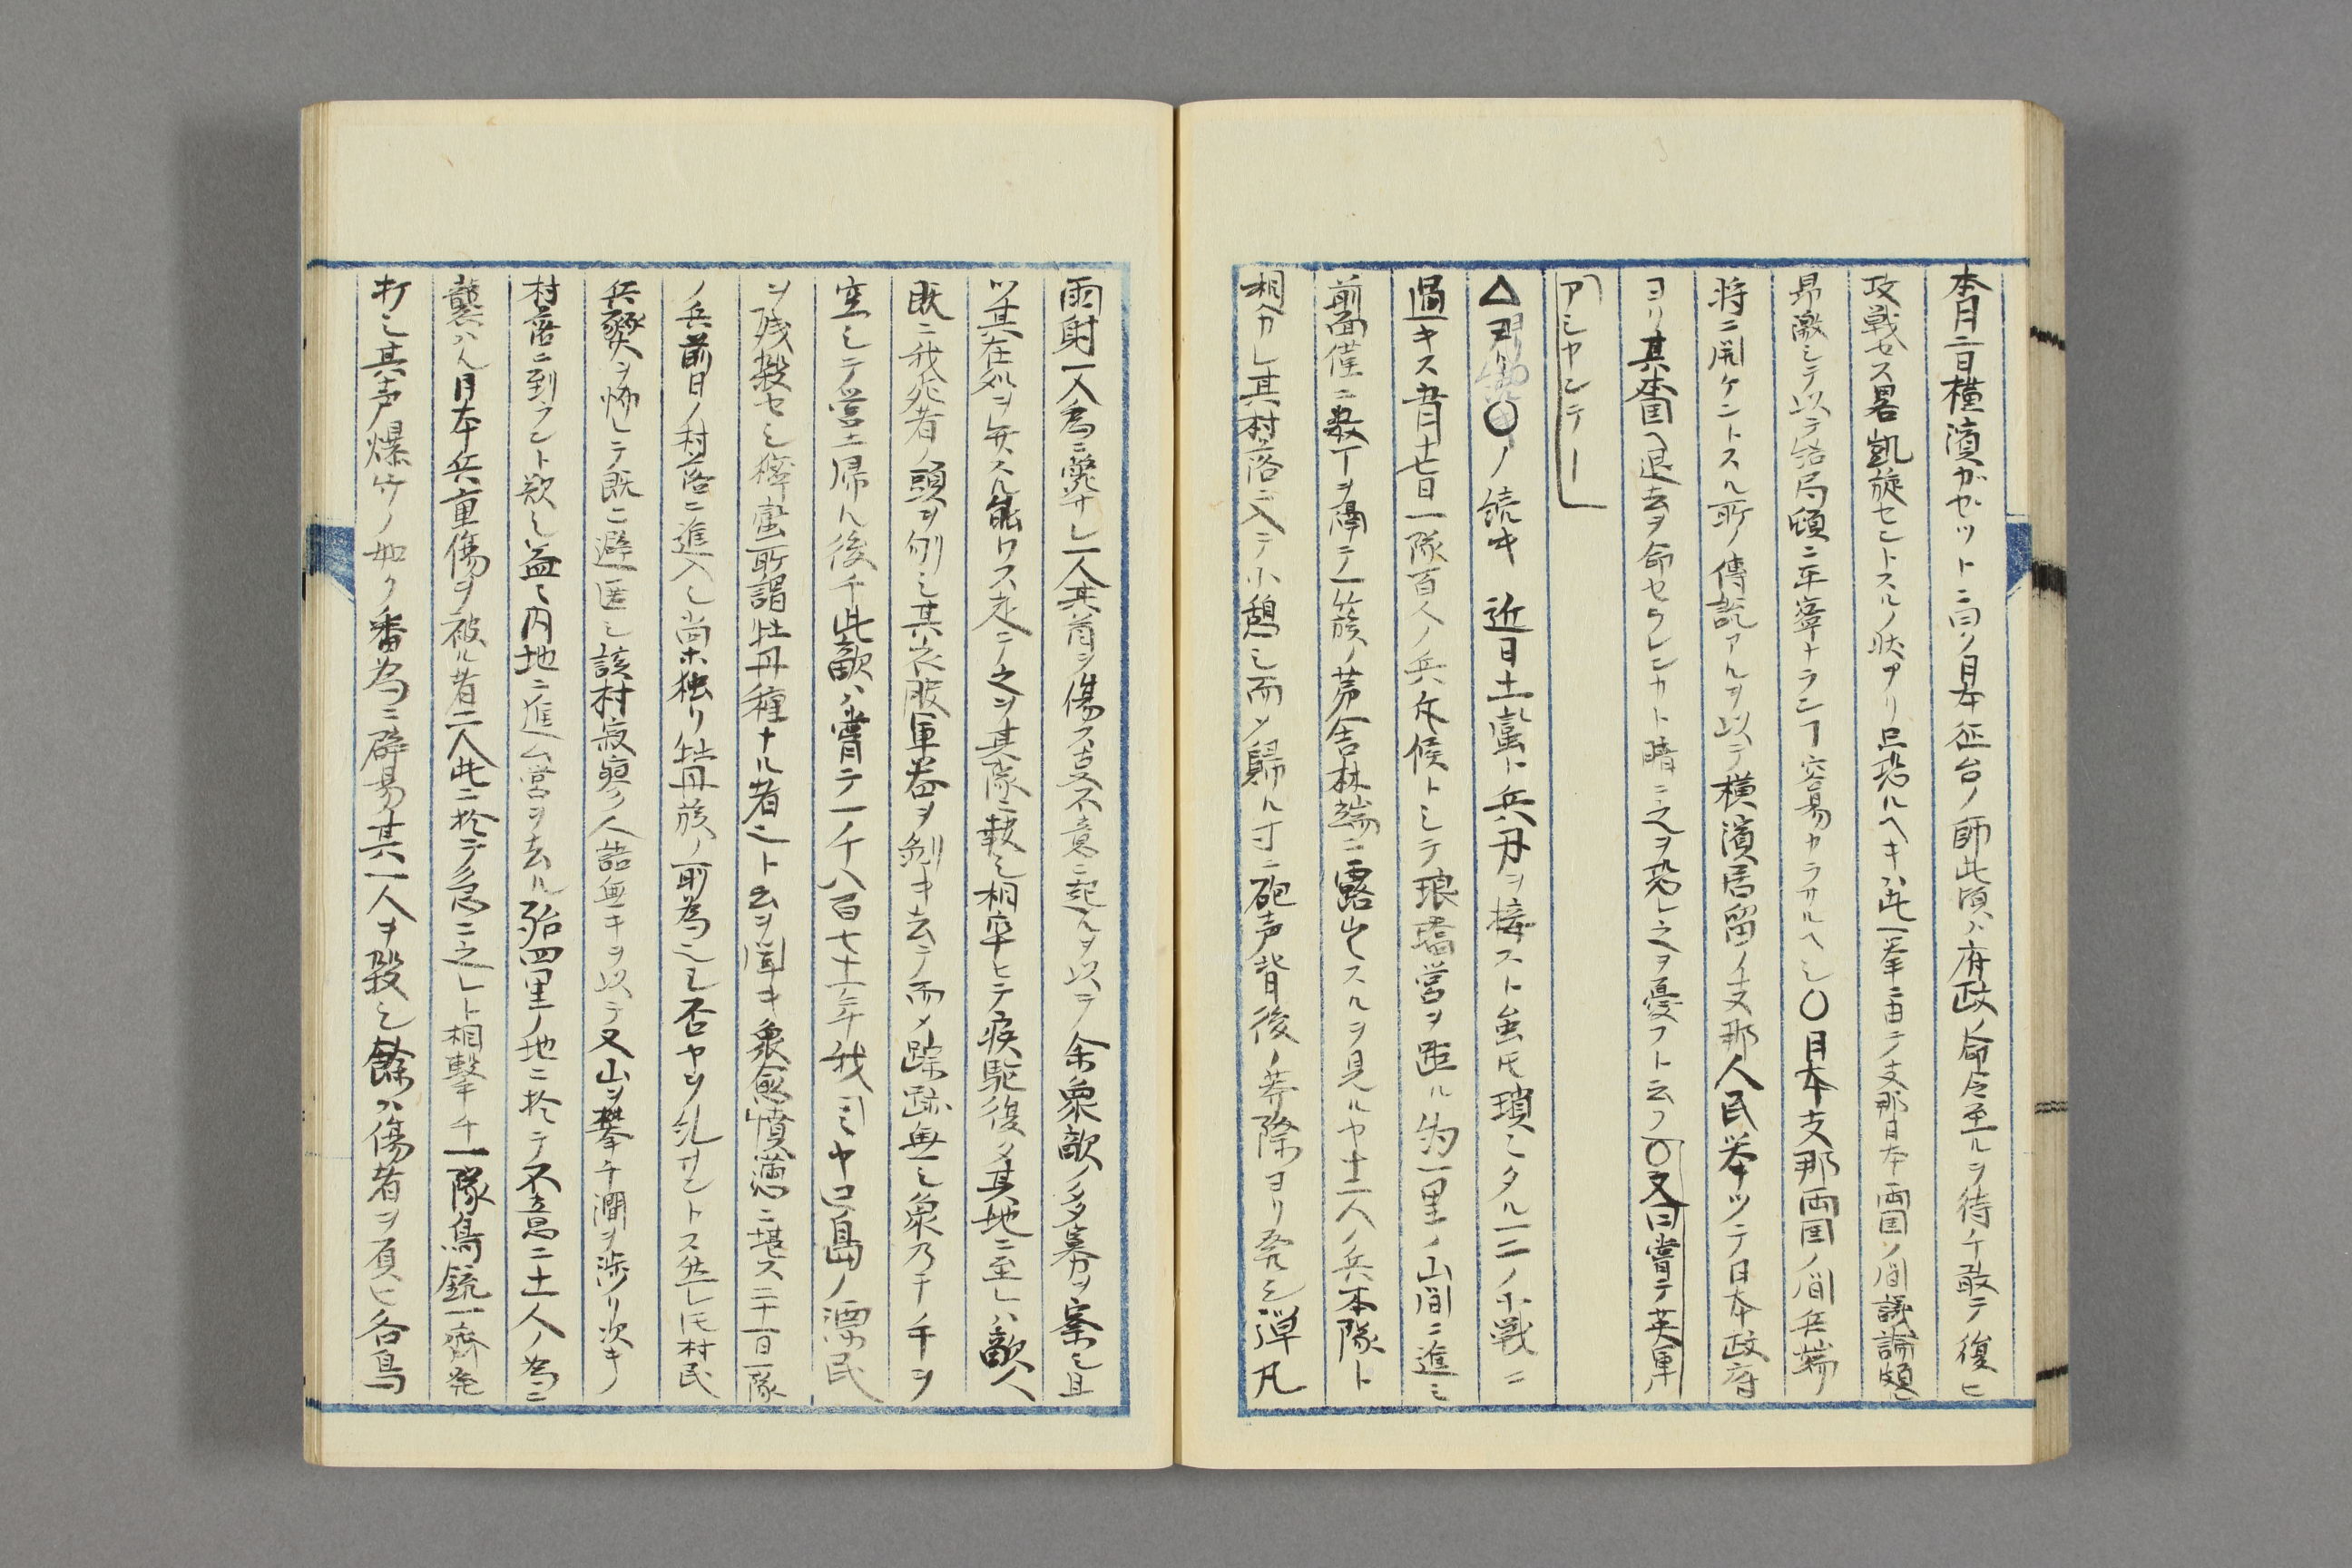 本月二日横濱ガゼットニ曰ク日本征台ノ師此頃ハ府政ノ命令至ルヲ待チ敢テ復ヒ
攻戦セス畧凱旋セントスルノ状アリ只恐ルヘキハ此一挙ニ由テ支那日本両国ノ間議論頗ル
昂激シテ以テ結局頗ニ平寧ナランヿ容易カラサルヘシ〇日本支那両国ノ間兵端
将ニ開ケントスル所ノ傳説アルヲ以テ横濱居留ノ支那人民挙ツテ日本政府
ヨリ其本国ヘ退去ヲ命セラレンカト暗ニ之ヲ恐レ之ヲ憂フト云フ〇又曰嘗テ英軍
アシヤンテー
△〇ノ続キ 近日土蛮ト兵刃ヲ接スト雖トモ瑣々タル一二ノ小戦ニ
過キス五月十七日一隊百人ノ兵斥候トシテ琅璚営ヲ距ル約一里ノ山間ニ進ミ
前面僅ニ数丁ヲ隔テ一簇ノ茅舎林端ニ露出スルヲ見ルヤ十二人ノ兵本隊ト
相分カレ其村落ニ入テ小憩シ而メ歸ル寸ニ砲声背後ノ莽際ヨリ発シ弾丸
雨射一人為ニ斃サレ一人其首ヲ傷ス古又不意ニ起ルヲ以テ余衆敵ノ多寡ヲ察シ且
ツ其在処ヲ見ス能ワス走テ之ヲ其隊ニ報シ相率ヒテ疾駆復タ其地ニ至レハ敵人
既ニ我死者ノ頭ヲ刎シ其衣服軍器ヲ剝キ去テ而メ踪跡無シ衆乃チ手ヲ
空シテ営ニ帰ル後チ此敵ハ嘗テ一千八百七十一年我ミヤコ島ノ漂民
ヲ残殺セシ獰蛮所謂牡丹種ナル者ト云ヲ聞キ衆愈憤懣ニ堪ス二十一日一隊
ノ兵前日ノ村落ニ進入シ尚ホ独リ牡丹族ノ所為ニモ否ヤヲ糺サントス然レトモ村民
兵燹ヲ怖レテ既ニ避匿シ該村寂寥人語無キヲ以テ又山ヲ攀チ澗ヲ渉リ次キノ
村落ニ到ラント欲シ益々内地ニ進ム営ヲ去ル殆四里ノ地ニ於テ不意ニ土人ノ為ニ
襲ハル日本兵重傷ヲ被ル者二人此ニ於テ急ニ之レト相撃チ一隊鳥銃一齊発
打シ其声爆竹ノ如ク番為ニ辟易其一人ヲ殺シ餘ハ傷者ヲ負ヒ各鳥